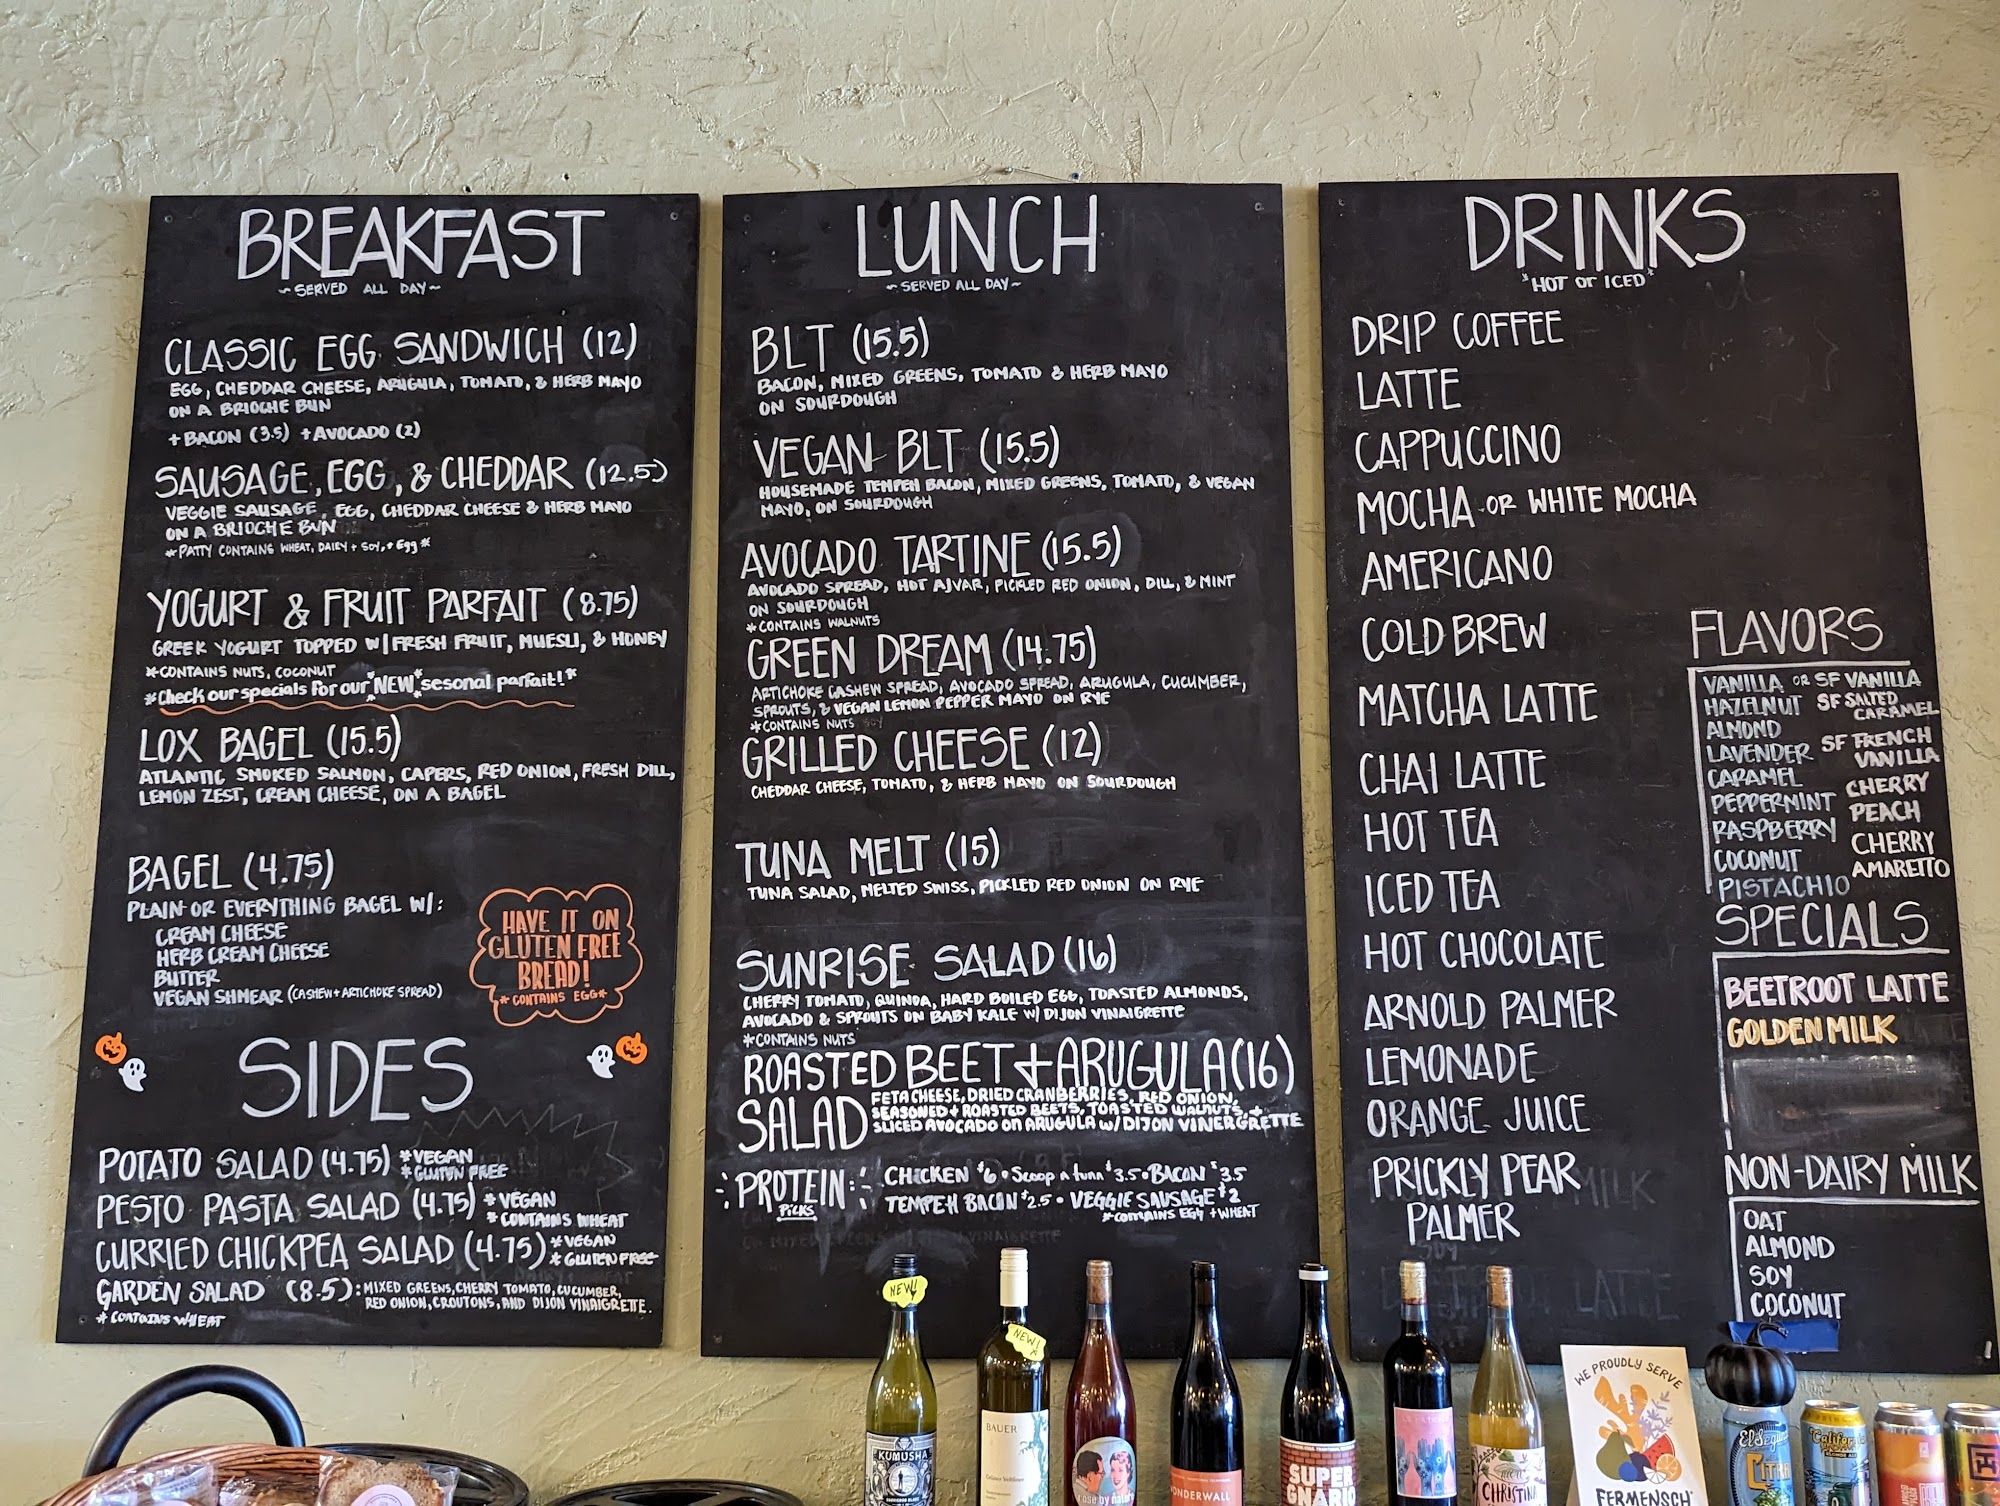 BREAKFAST
~SERVED ALL DAY~
CLASSIC EGG SANDWICH (12)
EGG, CHEDDAR CHEESE, ARUGULA, TOMATO, & HERB MAYO
ON A BRIOCHE BUN
+BACON (3.5) +AVOCADO (2)
SAUSAGE, EGG, & CHEDDAR (12.5)
VEGGIE SAUSAGE, EGG, CHEDDAR CHEESE & HERB MAYO
ON A BRIOCHE BUN
*PATTY CONTAINS WHEAT, DAIRY + SOY, + Egg*
YOGURT & FRUIT PARFAIT (8.75)
GREEK YOGURT TOPPED W/ FRESH FRUIT, MUESLI, & HONEY
*CONTAINS NUTS, COCONUT
*Check our specials for our *NEW* sesonal parfait!*
LOX BAGEL (15.5)
ATLANTIC SMOKED SALMON, CAPERS, RED ONION, FRESH DILL,
LEMON ZEST, CREAM CHEESE, ON A BAGEL
BAGEL (4.75)
PLAIN OR EVERYTHING BAGEL W/:
CREAM CHEESE
HERB CREAM CHEESE
BUTTER
VEGAN SHMEAR (CASHEW + ARTICHOKE SPREAD)
HAVE IT ON
GLUTEN FREE
BREAD!
*CONTAINS EGG*
SIDES
POTATO SALAD (4.75) *VEGAN
*GLUTEN FREE
PESTO PASTA SALAD (4.75) *VEGAN
*CONTAINS WHEAT
CURRIED CHICKPEA SALAD (4.75) *VEGAN
*GLUTEN FREE
GARDEN SALAD (8.5): MIXED GREENS, CHERRY TOMATO, CUCUMBER,
RED ONION, CROUTONS, AND DIJON VINAIGRETTE.
*CONTAINS WHEAT
LUNCH
~SERVED ALL DAY~
BLT (15.5)
BACON, MIXED GREENS, TOMATO & HERB MAYO
ON SOURDOUGH
VEGAN BLT (15.5)
HOUSEMADE TEMPEH BACON, MIXED GREENS, TOMATO, & VEGAN
MAYO, ON SOURDOUGH
AVOCADO TARTINE (15.5)
AVOCADO SPREAD, HOT AJVAR, PICKLED RED ONION, DILL, & MINT
ON SOURDOUGH
*CONTAINS WALNUTS
GREEN DREAM (14.75)
ARTICHOKE CASHEW SPREAD, AVOCADO SPREAD, ARUGULA, CUCUMBER,
SPROUTS, & VEGAN LEMON PEPPER MAYO ON RYE
*CONTAINS NUTS SOY
GRILLED CHEESE (12)
CHEDDAR CHEESE, TOMATO, & HERB MAYO ON SOURDOUGH
TUNA MELT (15)
TUNA SALAD, MELTED SWISS, PICKLED RED ONION ON RYE
SUNRISE SALAD (16)
CHERRY TOMATO, QUINOA, HARD BOILED EGG, TOASTED ALMONDS,
AVOCADO & SPROUTS ON BABY KALE W/ DIJON VINAIGRETTE
*CONTAINS NUTS
ROASTED BEET + ARUGULA (16)
SALAD FETA CHEESE, DRIED CRANBERRIES, RED ONION,
SEASONED + ROASTED BEETS, TOASTED WALNUTS, +
SLICED AVOCADO on ARUGULA w/ DIJON VINERGRETTE
PROTEIN: CHICKEN $6 • Scoop a tuna $3.5 • BACON $3.5
PICKS TEMPEH BACON $2.5 • VEGGIE SAUSAGE $2
*CONTAINS EGG + WHEAT
DRINKS
*HOT or ICED*
DRIP COFFEE
LATTE
CAPPUCCINO
MOCHA OR WHITE MOCHA
AMERICANO
COLD BREW
MATCHA LATTE
CHAI LATTE
HOT TEA
ICED TEA
HOT CHOCOLATE
ARNOLD PALMER
LEMONADE
ORANGE JUICE
PRICKLY PEAR
PALMER
FLAVORS
VANILLA OR SF VANILLA
HAZELNUT SF SALTED
CARAMEL
ALMOND
LAVENDER SF FRENCH
VANILLA
CARAMEL CHERRY
PEPPERMINT PEACH
RASPBERRY CHERRY
COCONUT AMARETTO
PISTACHIO
SPECIALS
BEETROOT LATTE
GOLDEN MILK
NON-DAIRY MILK
OAT
ALMOND
SOY
COCONUT
NEW!
NEW!
KUMUSHA
BAUER
Grüner Veltliner
rose by nature
WONDERWALL
SUPER
GNARIO
CHRISTINA
WE PROUDLY SERVE
FERMENSCH
El Segundo
CITRA
California